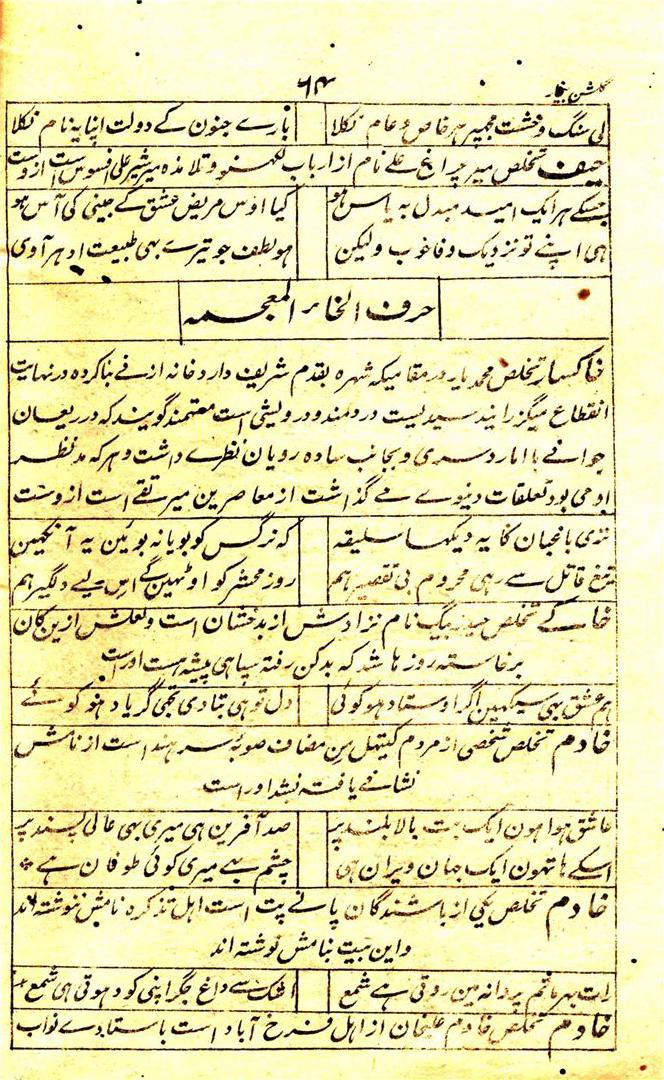 گلشن بیخار
۶۴
لی سنگ و خشت مجھپر ہر خاص و عام نکلا
بارے جنون کے دولت اپنا یہ نام نکلا
حیف تخلص میر چراغ علے نام از ارباب لکھنو و تلامذہ میر شیر علی افسوس است ازوست
جسکے ہر ایک امید مبدل بہ یاس ہو
کیا اوس مریض عشق کے جینی کی آس ہو
ہی اپنے تو نزدیک وفا خوب ولیکن
ہو لطف جو تیرے بہی طبیعت ادہر آوی
حرف الخاء المعجمہ
خاکسار تخلص محمد یار در مقامیکہ شہرہ بقدم شریف دارد خانہ ازنے بنا کردہ در نہایت
انقطاع میگزرانید سیدیست دردمند و درویشی است معتمند گویند کہ در ریعان
جوانے با امارد سری و بجانب سادہ رویان نظرے داشت و ہر کہ مد نظر
او می بود تعلقات دنیوے مے گذاشت از معاصرین میر تقے است ازوست
تری باغبان کا یہ دیکھا سلیقہ
کہ نرگس کو بویا نہ بوئین یہ آنکہین
تیغ قاتل سے رہی محروم بی تقصیر ہم
روز محشر کو اوٹہین گے اس لیے دلگیر ہم
خاکے تخلص بیگ نام نژادش از بدخشان است و لعلش ازین کان
برخاستہ روزہا شد کہ بدکن رفتہ سپاہی پیشہ است اوراست
ہم عشق بہی سیکہین اگر اوستاد ہو کوئی
دل تو ہی بتا دی تجہی گر یاد ہو کوئے
خادم تخلص شخصی از مردم کیتہل من مضاف صوبہ سرہند است از نامش
نشانے یافتہ نشد اوراست
عاشق ہوا ہون ایک بت بالا بلند پر
صد آفرین ہی میری بہی عالی پسند پر
اسکے ہاتہون ایک جہان ویران ہی
چشم ہے میری کوئی طوفان ہے
خادم تخلص یکی از باشندگان پانے پت است اہل تذکرہ نامش ننوشتہ اند
و این بیت بنامش نوشتہ اند
رات بہر ماتم پروانہ مین روتی ہے شمع
اشک سے داغ جگر اپنی کو دہوتی ہی شمع
خادم تخلص خادم علیخان از اہل فرخ آباد است باستادے نواب